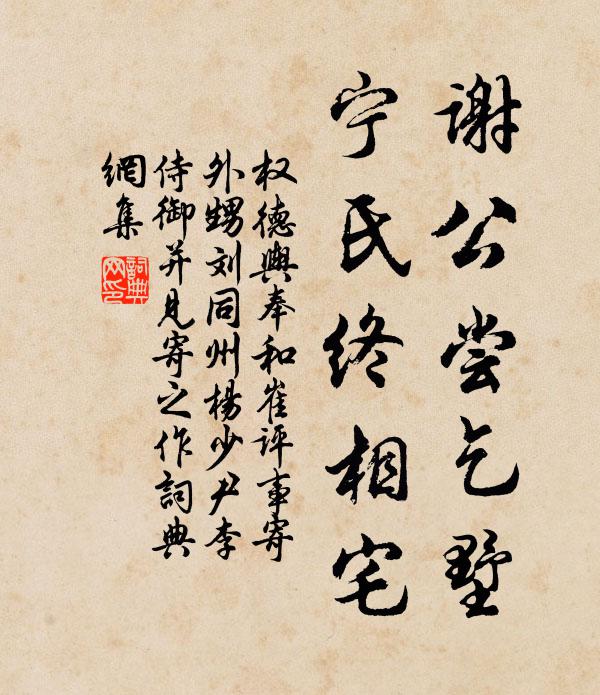 谢公尝乞墅
宁氏终相宅
权德舆奉和崔评事寄
外甥刘同州楊少尹李
侍御并见寄之作詞典
網集
詞典網印